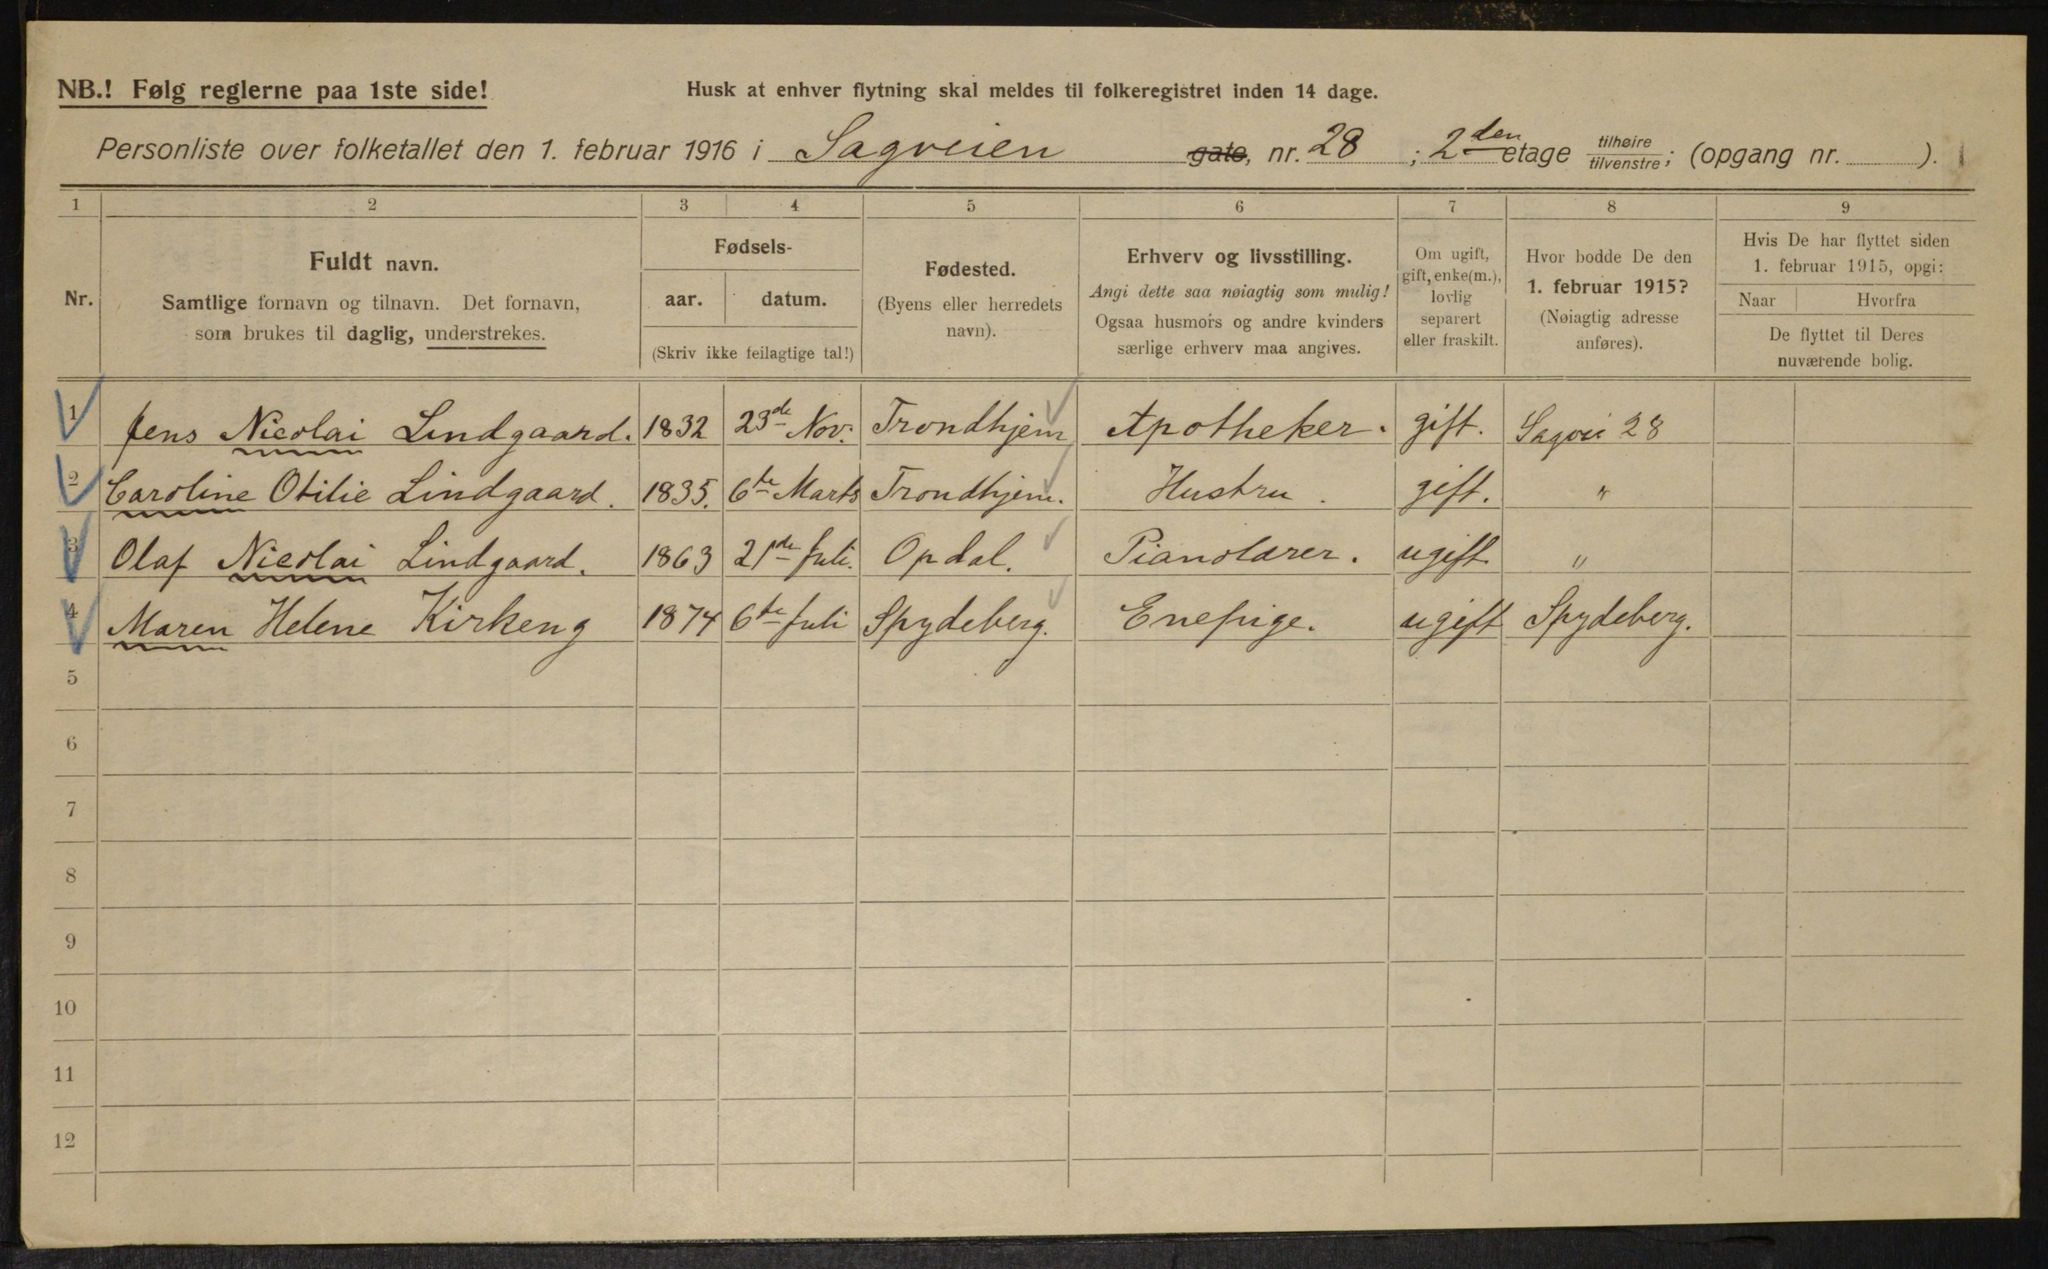 NB.! Følg reglerne paa 1ste side!
Husk at enhver flytning skal meldes til folkeregistret inden 14 dage.
Personliste over folketallet den 1. februar 1916 i Sagveien gate, nr. 28 ; 2den etage tilhøire/tilvenstre; (opgang nr. ).
1 2 3 4 5 6 7 8 9
Nr.
Fuldt navn.
Samtlige fornavn og tilnavn. Det fornavn,
som brukes til daglig, understrekes.
Fødsels-
aar. datum.
(Skriv ikke feilagtige tal!)
Fødested.
(Byens eller herredets
navn).
Erhverv og livsstilling.
Angi dette saa nøiagtig som mulig!
Ogsaa husmors og andre kvinders
særlige erhverv maa angives.
Om ugift,
gift, enke(m.),
lovlig
separert
eller fraskilt.
Hvor bodde De den
1. februar 1915?
(Nøiagtig adresse
anføres).
Hvis De har flyttet siden
1. februar 1915, opgi:
Naar Hvorfra
De flyttet til Deres
nuværende bolig.
1 Jens Nicolai Lindgaard. 1832 23de Nov. Trondhjem Apotheker. gift. Sagvei 28
2 Caroline Otilie Lindgaard. 1835. 6te Marts Trondhjem. Hustru. gift. "
3 Olaf Nicolai Lindgaard. 1863 21de Juli. Opdal. Pianolærer. ugift "
4 Maren Helene Kirkeng 1874 6te Juli Spydeberg. Enepige. ugift Spydeberg.
5
6
7
8
9
10
11
12